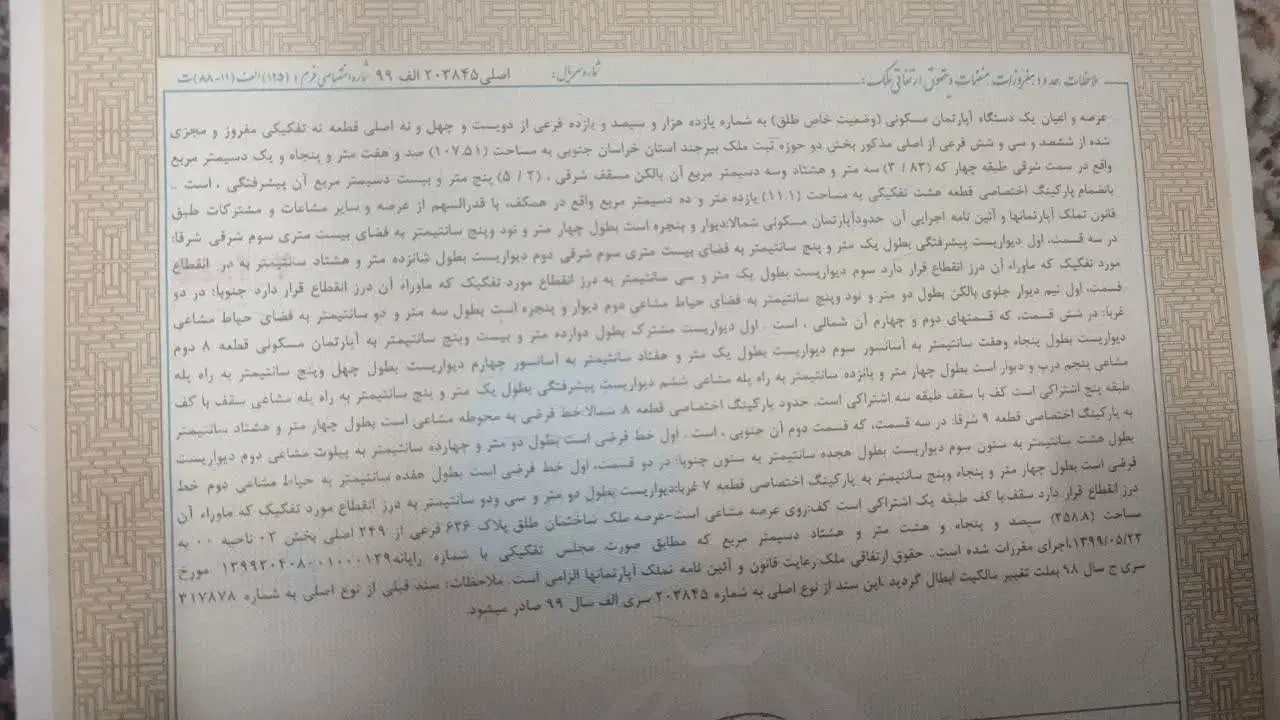 ملاحظات حدود، مفروزات، منضمات و حقوق ارتفاقی ملک: شماره سریال: اصلی ۲۰۳۸۴۵ الف ۹۹ شماره اختصاصی فرم: (۱۲۵) الف (۱۱-۸۸) ت
عرصه و اعیان یک دستگاه آپارتمان مسکونی (وضعیت خاص طلق) به شماره یازده هزار و سیصد و یازده فرعی از دویست و چهل و نه اصلی قطعه نه تفکیکی مفروز و مجزی
شده از ششصد و سی و شش فرعی از اصلی مذکور بخش دو حوزه ثبت ملک بیرجند استان خراسان جنوبی به مساحت (۱۰۷.۵۱) صد و هفت متر و پنجاه و یک دسیمتر مربع
واقع در سمت شرقی طبقه چهار که (۸۳ / ۳) سه متر و هشتاد وسه دسیمتر مربع آن بالکن مسقف شرقی ، (۲ / ۵) پنج متر و بیست دسیمتر مربع آن پیشرفتگی ، است ..
بانضمام پارکینگ اختصاصی قطعه هشت تفکیکی به مساحت (۱۱.۱) یازده متر و ده دسیمتر مربع واقع در همکف، با قدرالسهم از عرصه و سایر مشاعات و مشترکات طبق
قانون تملک آپارتمانها و آئین نامه اجرایی آن حدودآپارتمان مسکونی شمالا:دیوار و پنجره است بطول چهار متر و نود وپنج سانتیمتر به فضای بیست متری سوم شرقی شرقا:
در سه قسمت، اول دیواریست پیشرفتگی بطول یک متر و پنج سانتیمتر به فضای بیست متری سوم شرقی دوم دیواریست بطول شانزده متر و هشتاد سانتیمتر به درز انقطاع
مورد تفکیک که ماوراء آن درز انقطاع قرار دارد سوم دیواریست بطول یک متر و سی سانتیمتر به درز انقطاع مورد تفکیک که ماوراء آن درز انقطاع قرار دارد جنوبا: در دو
قسمت، اول نیم دیوار جلوی بالکن بطول دو متر و نود وپنج سانتیمتر به فضای حیاط مشاعی دوم دیوار و پنجره است بطول سه متر و دو سانتیمتر به فضای حیاط مشاعی
غربا: در شش قسمت، که قسمتهای دوم و چهارم آن شمالی ، است . اول دیواریست مشترک بطول دوازده متر و بیست وپنج سانتیمتر به آپارتمان مسکونی قطعه ۸ دوم
دیواریست بطول پنجاه وهفت سانتیمتر به آسانسور سوم دیواریست بطول یک متر و هفتاد سانتیمتر به آسانسور چهارم دیواریست بطول چهل وپنج سانتیمتر به راه پله
مشاعی پنجم درب و دیوار است بطول چهار متر و پانزده سانتیمتر به راه پله مشاعی ششم دیواریست پیشرفتگی بطول یک متر و پنج سانتیمتر به راه پله مشاعی سقف با کف
طبقه پنج اشتراکی است کف با سقف طبقه سه اشتراکی است. حدود پارکینگ اختصاصی قطعه ۸ شمالا:خط فرضی به محوطه مشاعی است بطول چهار متر و هشتاد سانتیمتر
به پارکینگ اختصاصی قطعه ۹ شرقا: در سه قسمت، که قسمت دوم آن جنوبی ، است . اول خط فرضی است بطول دو متر و چهارده سانتیمتر به پیلوت مشاعی دوم دیواریست
بطول هشت سانتیمتر به ستون سوم دیواریست بطول هجده سانتیمتر به ستون جنوبا: در دو قسمت، اول خط فرضی است بطول هفده سانتیمتر به حیاط مشاعی دوم خط
فرضی است بطول چهار متر و پنجاه وپنج سانتیمتر به پارکینگ اختصاصی قطعه ۷ غربا:دیواریست بطول دو متر و سی ودو سانتیمتر به درز انقطاع مورد تفکیک که ماوراء آن
درز انقطاع قرار دارد سقف:با کف طبقه یک اشتراکی است کف:روی عرصه مشاعی است-عرصه ملک ساختمان طلق پلاک ۶۳۶ فرعی از ۲۴۹ اصلی بخش ۰۲ ناحیه ۰۰ به
مساحت (۳۵۸.۸) سیصد و پنجاه و هشت متر و هشتاد دسیمتر مربع که مطابق صورت مجلس تفکیکی با شماره رایانه ۱۳۹۹۲۰۴۰۸۰۰۱۰۰۰۱۳۹ مورخ
۱۳۹۹/۰۵/۲۳،اجرای مقررات شده است. حقوق ارتفاقی ملک:رعایت قانون و آئین نامه تملک آپارتمانها الزامی است. ملاحظات: سند قبلی از نوع اصلی به شماره ۳۱۷۸۷۸
سری ج سال ۹۸ بعلت تغییر مالکیت ابطال گردید .این سند از نوع اصلی به شماره ۲۰۳۸۴۵ سری الف سال ۹۹ صادر میشود.